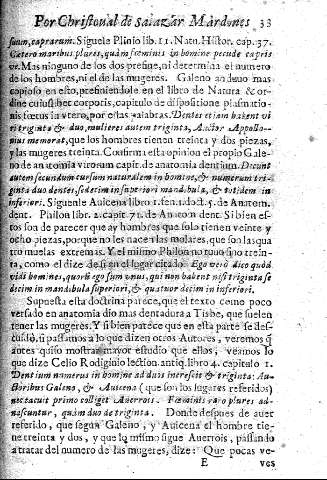 Por Christoual de Salazar Mardones 33
suum, caprarum. Siguele Plinio lib. 11. Natu. Histor. cap. 37.
Cætero maribus plures, quàm fœminis in homine pecude capris
ve. Mas ninguno de los dos prefine, ni determina el numero
de los hombres, ni el de las mugeres. Galeno anduuo mas
copioso en esto, prefiniendole en el libro de Natura & or-
dine cuiuslibet corporis, capitulo de dispositione plasmatio-
nis fœtus in vtero, por estas palabras. Dentes etiam habent vi
ri triginta & duo, mulieres autem triginta, Auctor Appollo-
nius memorat, que los hombres tienen treinta y dos piezas,
y las mugeres treinta. Confirma esta opinion el propio Gale-
no de anatomia viuorum capit. de anatomia dentium. Dentes
autem secundum cursum naturalem in homine, & numerum tri-
ginta duo dentes, sedetim in superiori mandibula, & totidem in
inferiori. Siguenle Auicena libro 1. fen. 1. doct. 5. de Anatom.
dent. Philon libr. 2. capit. 71. de Anatom dent. Si bien es-
tos son de parecer que ay hombres que solo tienen veinte y
ocho piezas, porque no les nacen las molares, que son las qua
tro muelas extremas. Y el mismo Philon no tuuo sino trein-
ta, como el dize de si en el lugar citado. Ego verò dico quòd
vidi homines, quorũ ego sum vnus, qui non habent nisi triginta se
decim in mandibula superiori, & quatuor decim in inferiori.
Supuesta esta doctrina parece, que el texto como poco
versado en anatomia dio mas dentadura a Tisbe, que suelen
tener las mugeres. Y si bien parece que en esta parte se des-
cuidò, si passamos a lo que dizen otros Autores, veremos q̃
antes quiso mostrar mayor estudio que ellos, veamos lo
que dize Celio Rodiginio lection. antiq. lib. 4. capitulo 1.
Dentium numerus in homine ad duis increscit & triginta: Au-
ctoribus Galeno, & Auicena (que son los lugares referidos)
nec secus ut primo colliget Auerrois. Fœminis raro plures ad-
nascuntur, quàm duo de triginta. Donde despues de auer
referido, que segun Galeno, y Auicena el hombre tie-
ne treinta y dos, y que lo mismo sigue Auerrois, passando
a tratar del numero de las mugeres, dize: Que pocas ve-
E ves